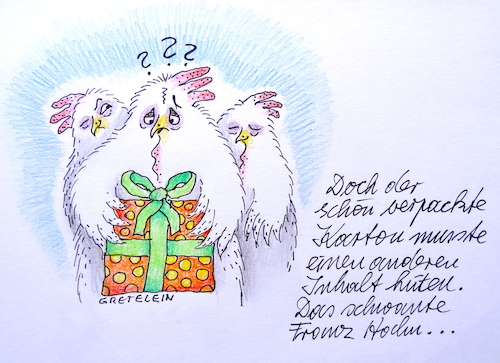 ? ? ?
Doch der
schön verpackte
Karton musste
einen anderen
Inhalt hüten.
Das schwante
Franz Hahn...
GRETELEIN